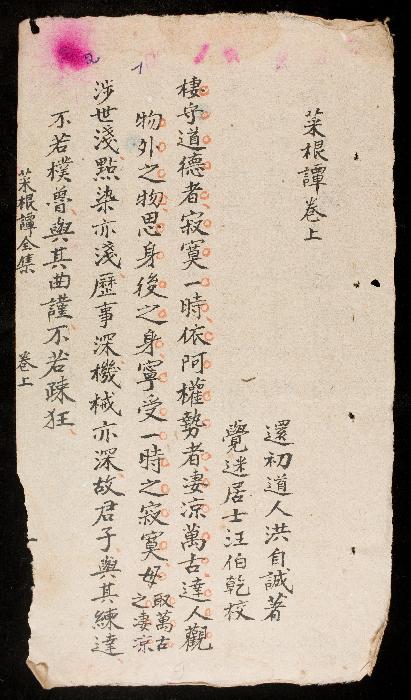 菜根譚卷上
還初道人洪自誠著
覺迷居士汪伯乾校
棲守道德者寂寞一時依阿權勢者淒涼萬古達人觀
物外之物思身後之身寧受一時之寂寞毋取萬古之淒涼
涉世淺點染亦淺歷事深機械亦深故君子與其練達
不若樸魯與其曲謹不若疎狂
菜根譚全集 卷上 一